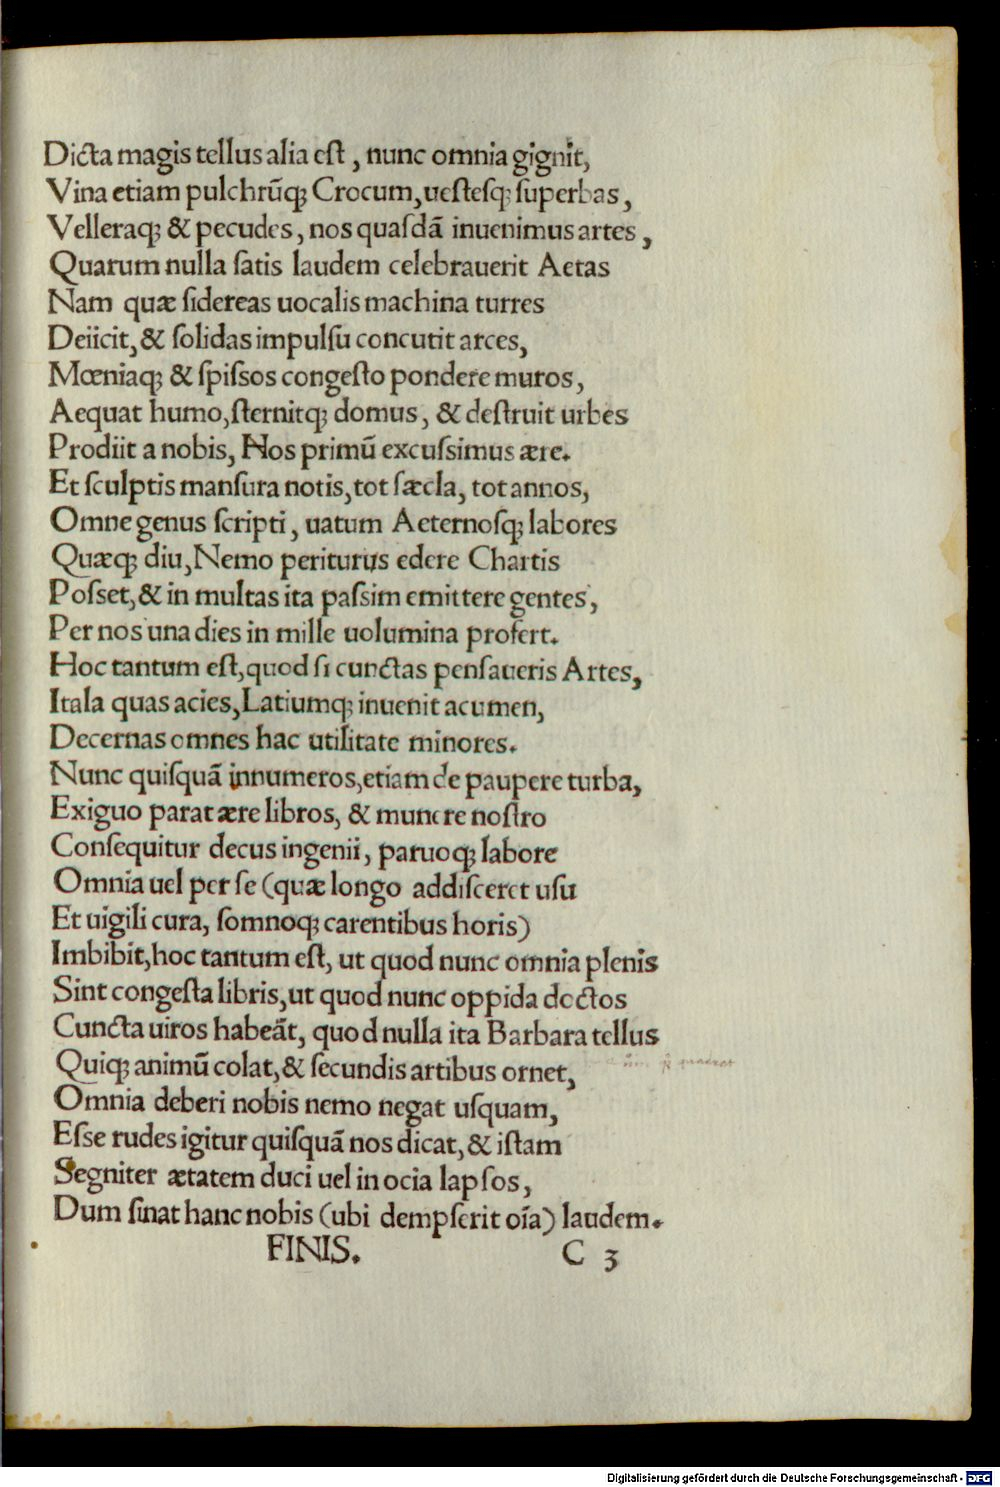 Dicta magis tellus alia est, nunc omnia gignit,
Vina etiam pulchrũq; Crocum, uestesq; superbas,
Velleraq; & pecudes, nos quasdã inuenimus artes,
Quarum nulla satis laudem celebrauerit Aetas
Nam quæ sidereas uocalis machina turres
Deiicit, & solidas impulsu concutit arces,
Mœniaq; & spissos congesto pondere muros,
Aequat humo, sternitq; domus, & destruit urbes
Prodiit a nobis, Nos primũ excussimus ære.
Et sculptis mansura notis, tot sæcla, tot annos,
Omne genus scripti, uatum Aeternosq; labores
Quæq; diu, Nemo periturus edere Chartis
Posset, & in multas ita passim emittere gentes,
Per nos una dies in mille uolumina profert.
Hoc tantum est, quod si cunctas pensaueris Artes,
Itala quas acies, Latiumq; inuenit acumen,
Decernas omnes hac utilitate minores.
Nunc quisquã innumeros, etiam de paupere turba,
Exiguo parat ære libros, & munere nostro
Consequitur decus ingenii, paruoq; labore
Omnia uel per se (quæ longo addisceret usu
Et uigili cura, somnoq; carentibus horis)
Imbibit, hoc tantum est, ut quod nunc omnia plenis
Sint congesta libris, ut quod nunc oppida doctos
Cuncta uiros habeãt, quod nulla ita Barbara tellus
Quiq; animũ colat, & secundis artibus ornet,
Omnia deberi nobis nemo negat usquam,
Esse rudes igitur quisquã nos dicat, & istam
Segniter ætatem duci uel in ocia lapsos,
Dum sinat hanc nobis (ubi dempserit oĩa) laudem.
FINIS. C 3
Digitalisierung gefördert durch die Deutsche Forschungsgemeinschaft - DFG